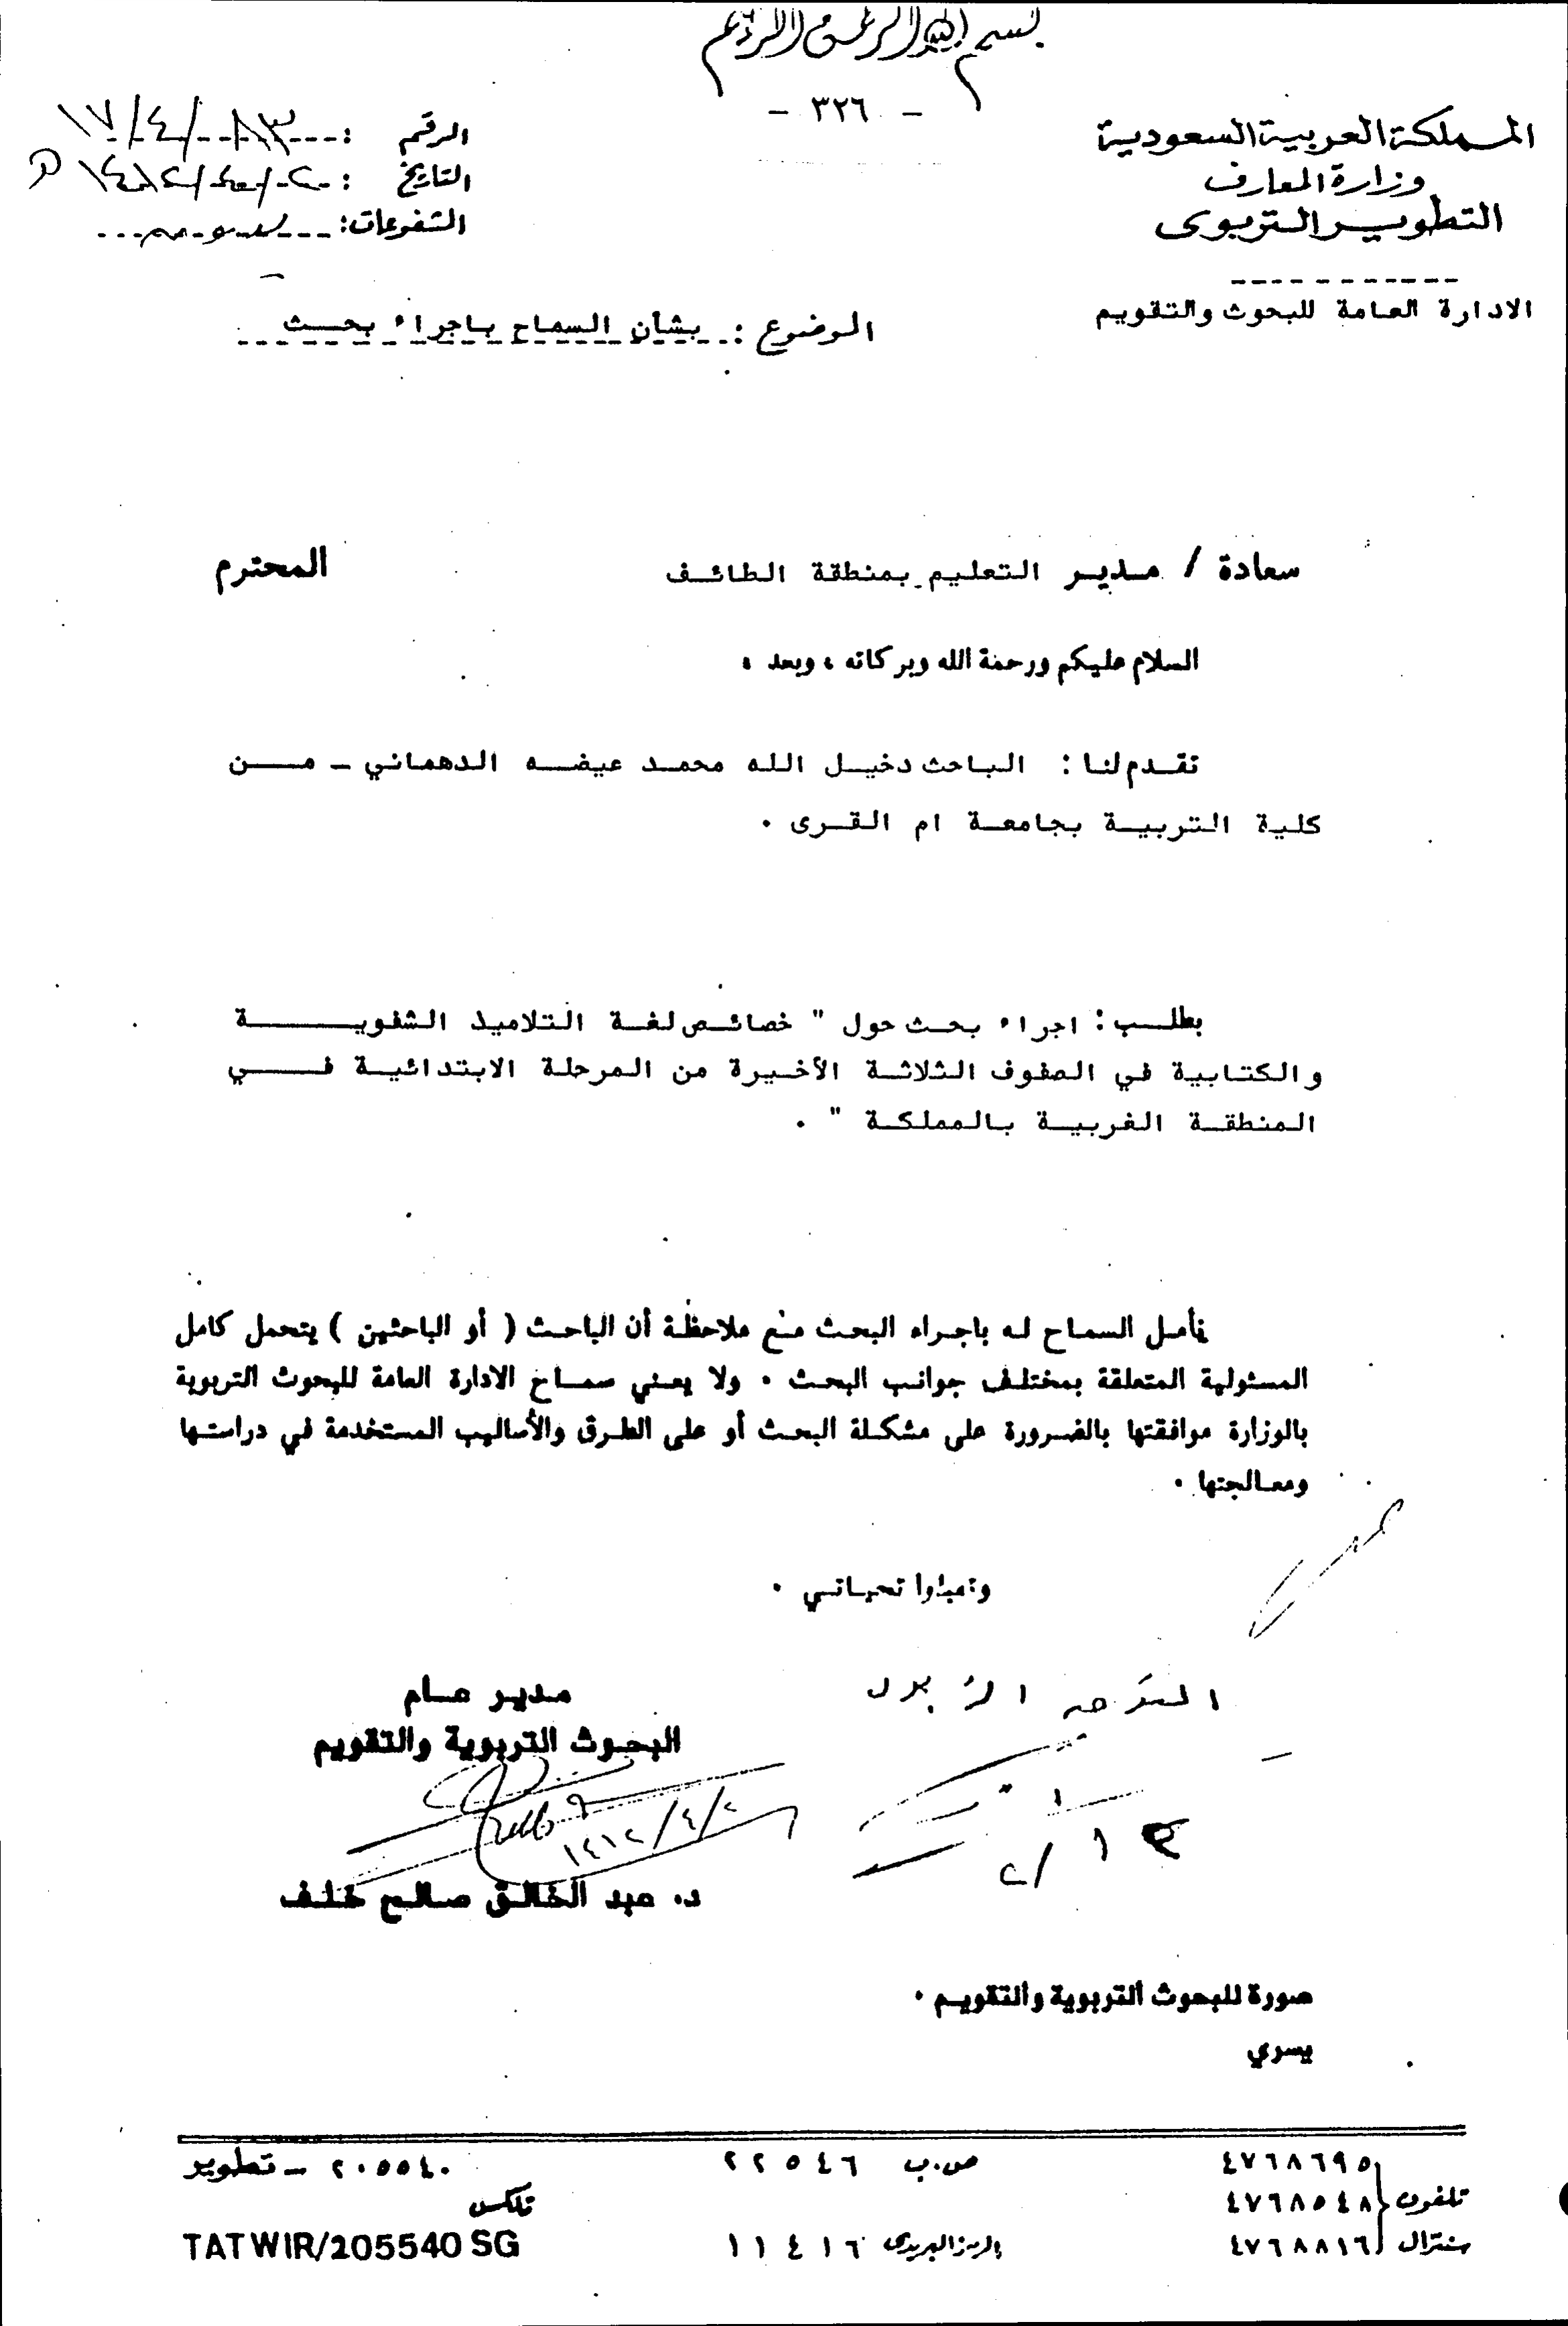 بسم الله الرحمن الرحيم
- ٣٢٦ -
المملكة العربية السعودية
وزارة المعارف
التطوير التربوى
الادارة العامة للبحوث والتقويم
الرقم :
التاريخ : ٢/٤/١٤١٢ هـ
المشفوعات :
الموضوع : بشأن السماح باجراء بحث
سعادة / مدير التعليم بمنطقة الطائف المحترم
السلام عليكم ورحمة الله وبركاته ، وبعد ،
تقدم لنا : الباحث دخيل الله محمد عيضه الدهماني - من
كلية التربية بجامعة ام القرى .
بطلب : اجراء بحث حول " خصائص لغة التلاميذ الشفوية
والكتابية في الصفوف الثلاثة الأخيرة من المرحلة الابتدائية في
المنطقة الغربية بالمملكة " .
نأمل السماح له باجراء البحث مع ملاحظة أن الباحث ( أو الباحثين ) يتحمل كامل
المسئولية المتعلقة بمختلف جوانب البحث . ولا يعني سماح الادارة العامة للبحوث التربوية
بالوزارة موافقتها بالضرورة على مشكلة البحث أو على الطرق والأساليب المستخدمة في دراستها
ومعالجتها .
وتقبلوا تحياتي .
مدير عام
البحوث التربوية والتقويم
١٤١٢/٤/٢
د. عبد الخالق صالح خلف
صورة للبحوث التربوية والتقويم .
يسري
تلفون ٤٧٦٨٦٩٥
٤٧٦٨٥٤٨
سنترال ٤٧٦٨٨١٦
ص.ب ٢٢٥٤٦
الرمز البريدى ١١٤١٦
٢٠٥٥٤٠ - تطوير
تلكس
TATWIR/205540 SG